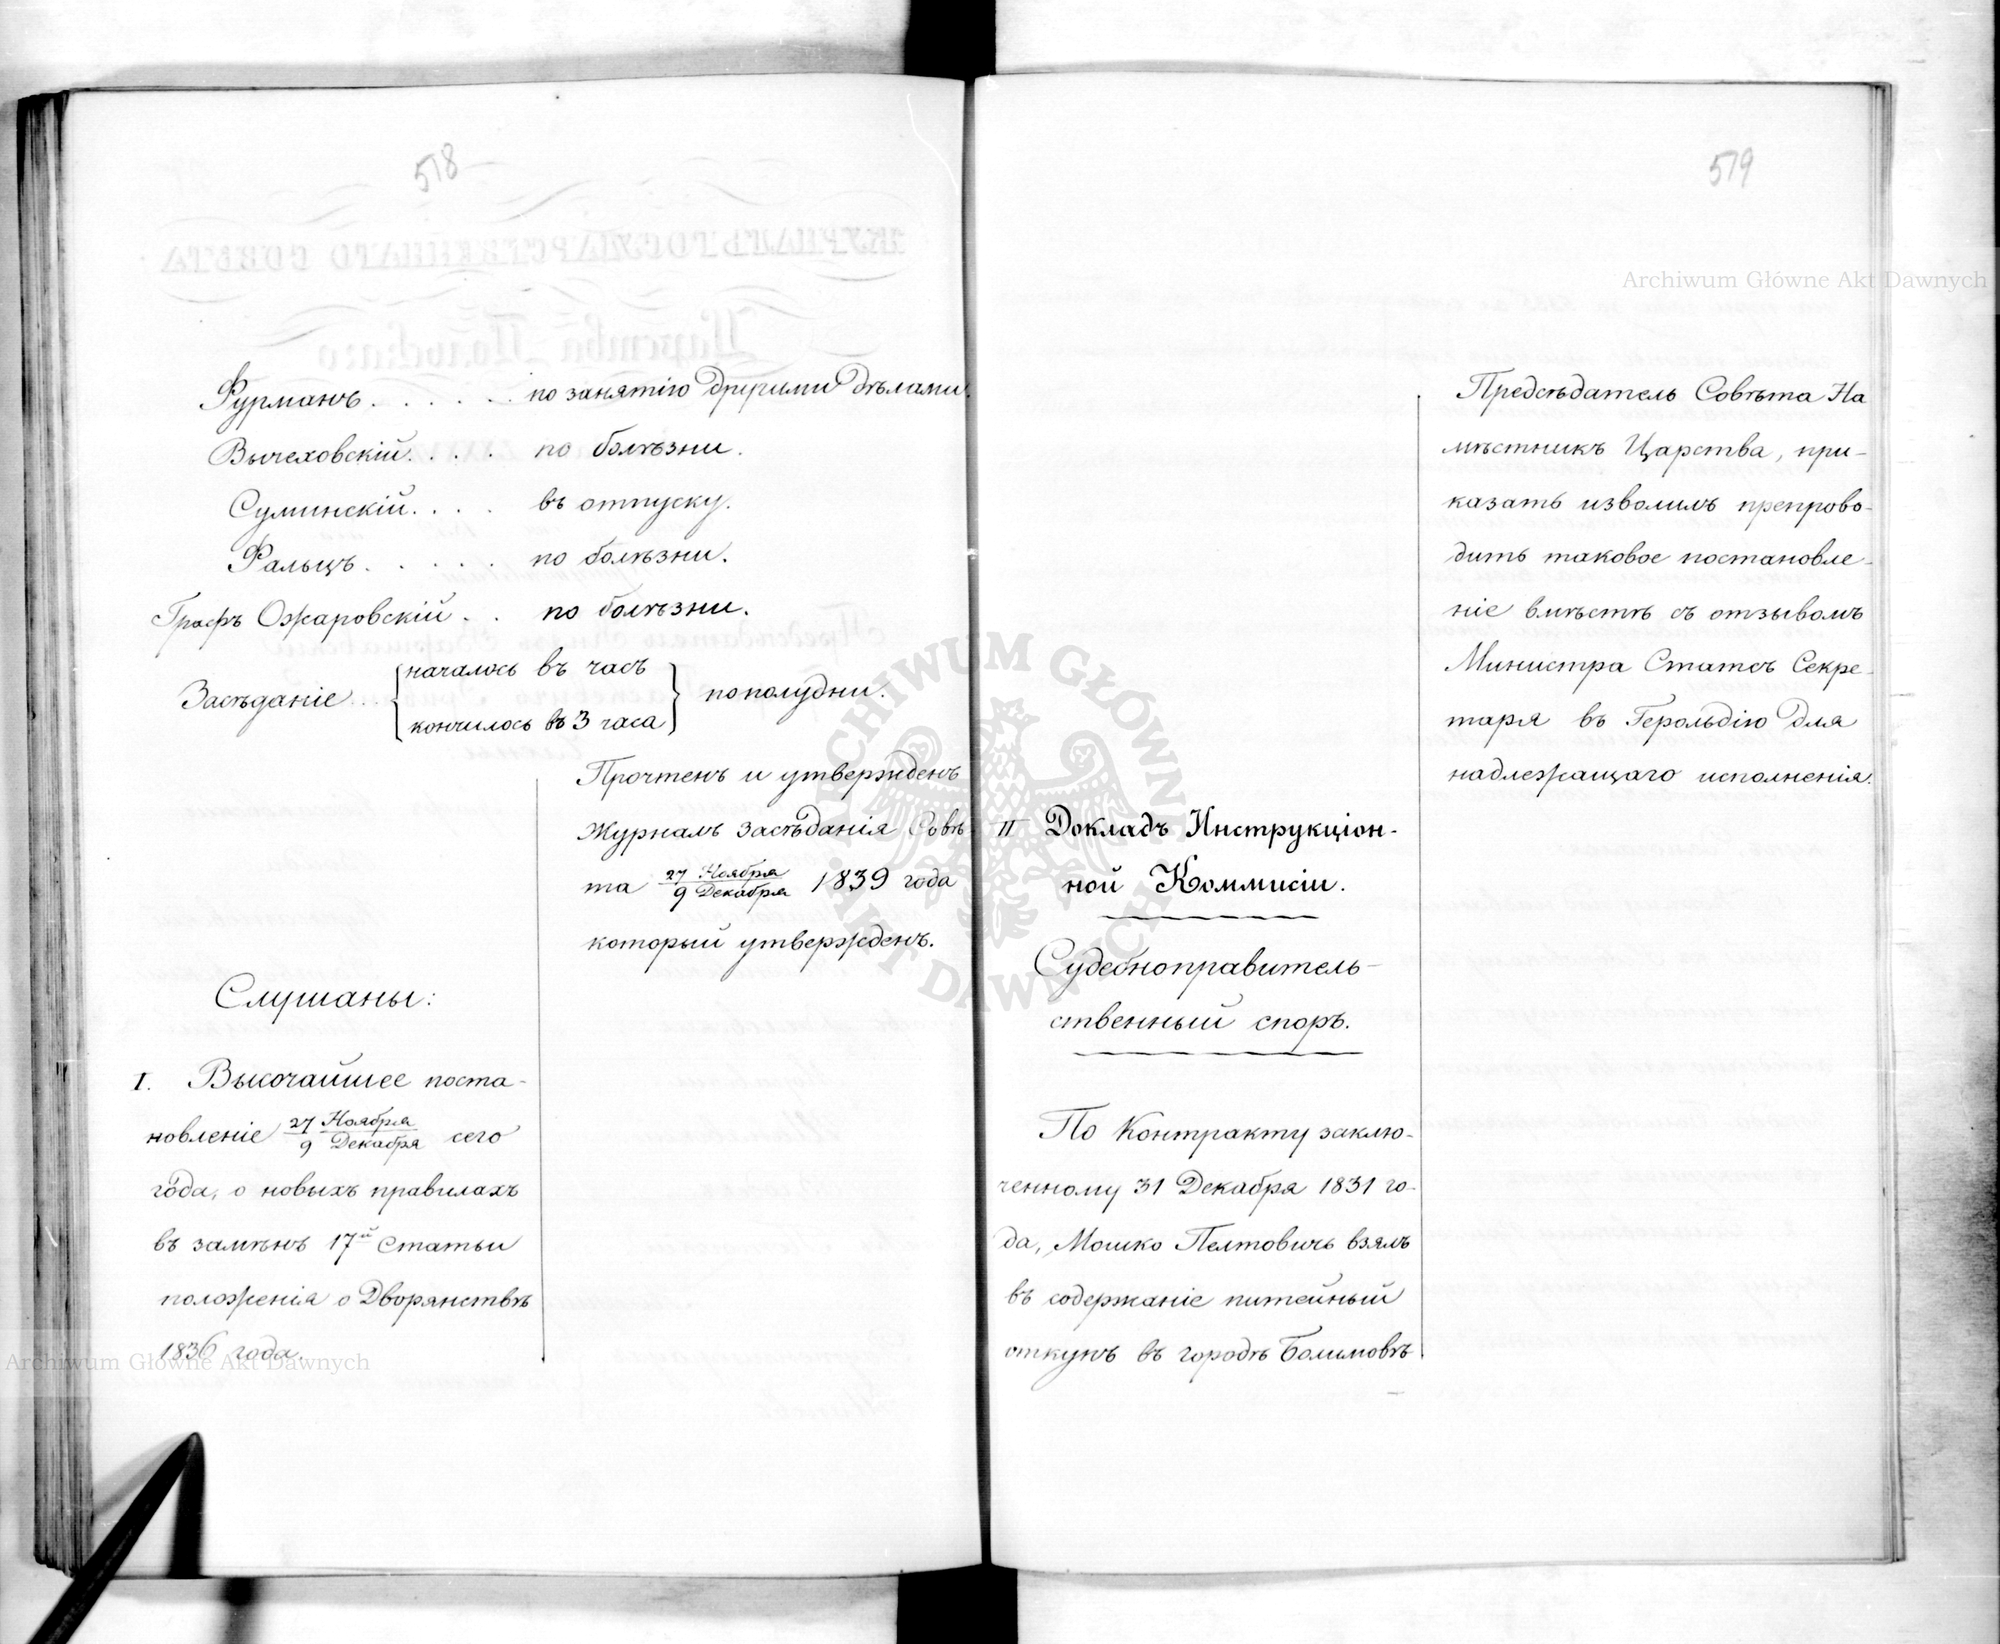 518
Фурманъ . . . . . . по занятію другими дѣлами.
Вычеховскій . . . . по болѣзни.
Суминскій . . . . въ отпуску.
Фальцъ . . . . . по болѣзни.
Графъ Ожаровскій . . по болѣзни.
Засѣданіе . . { началось въ часъ
кончилось въ 3 часа } пополудни.
Прочтенъ и утвержденъ
Журналъ засѣданія Совѣ-
та 27 Ноября / 9 Декабря 1839 года
который утвержденъ.
Слушаны:
I. Высочайшее поста-
новленіе 27 Ноября / 9 Декабря сего
года, о новыхъ правилахъ
въ замѣнъ 17й Статьи
положенія о Дворянствѣ
1836 года.
519
Предсѣдатель Совѣта На
мѣстникъ Царства, при-
казать изволилъ препрово-
дить таковое постановле-
ніе вмѣстѣ съ отзывомъ
Министра Статсъ Секре-
таря въ Герольдію для
надлежащаго исполненія.
II Докладъ Инструкціон-
ной Коммисіи.
Судебноправитель-
ственный споръ.
По Контракту заклю-
ченному 31 Декабря 1831 го-
да, Мошко Пелтовичъ взялъ
въ содержаніе питейный
откупъ въ городѣ Болимовѣ
Archiwum Główne Akt Dawnych
Archiwum Główne Akt Dawnych
ARCHIWUM GŁÓWNE AKT DAWNYCH